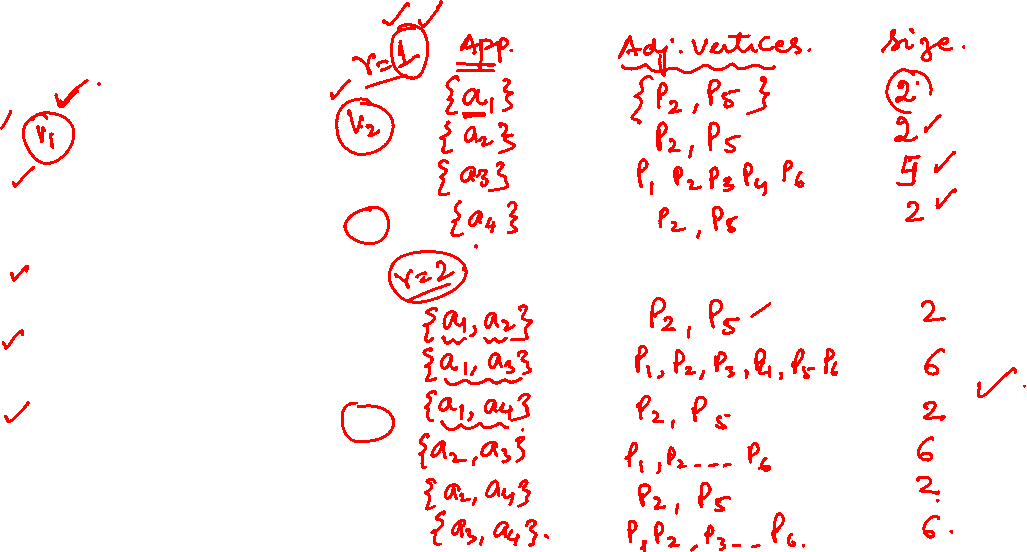 r=1 App. Adj. Vertices. Size.
V₁ V₂ {a₁} {P₂, P₅} 2
{a₂} P₂, P₅ 2
{a₃} P₁ P₂ P₃ P₄ P₆ 5
{a₄} P₂, P₅ 2
r=2
{a₁, a₂} P₂, P₅ 2
{a₁, a₃} P₁, P₂, P₃, P₄, P₅ P₆ 6
{a₁, a₄} P₂, P₅ 2
{a₂, a₃} P₁, P₂ --- P₆ 6
{a₂, a₄} P₂, P₅ 2
{a₃, a₄}. P₁ P₂, P₃ -- P₆. 6.